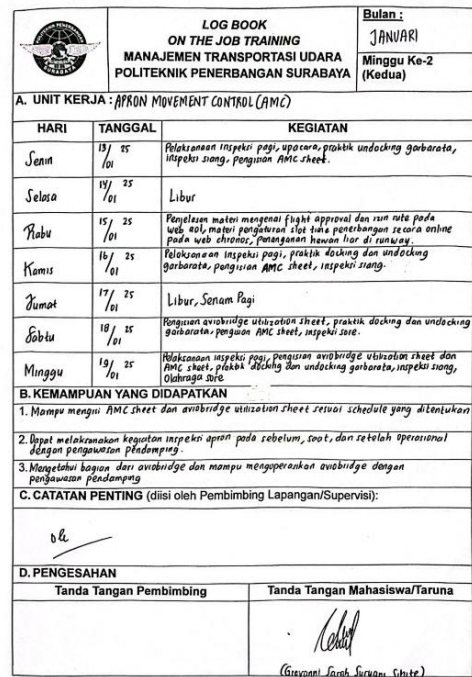 LOG BOOK
ON THE JOB TRAINING
MANAJEMEN TRANSPORTASI UDARA
POLITEKNIK PENERBANGAN SURABAYA
Bulan :
JANUARI
Minggu Ke-2
(Kedua)
A. UNIT KERJA : APRON MOVEMENT CONTROL (AMC)
HARI TANGGAL KEGIATAN
Senin 13/01 25 Pelaksanaan inspeksi pagi, upacara, praktik undocking garbarata,
inspeksi siang, pengisian AMC sheet.
Selasa 14/01 25 Libur
Rabu 15/01 25 Penjelasan materi mengenai flight approval dan izin rute pada
web aol, materi pengaturan slot time penerbangan secara online
pada web chronos, penanganan hewan liar di runway.
Kamis 16/01 25 Pelaksanaan inspeksi pagi, praktik docking dan undocking
garbarata, pengisian AMC sheet, inspeksi siang.
Jumat 17/01 25 Libur, Senam Pagi
Sabtu 18/01 25 Pengisian aviobridge utilization sheet, praktik docking dan undocking
garbarata, pengisian AMC sheet, inspeksi sore.
Minggu 19/01 25 Pelaksanaan inspeksi pagi, pengisian aviobridge utilization sheet dan
AMC sheet, praktik docking dan undocking garbarata, inspeksi siang,
Olahraga sore
B. KEMAMPUAN YANG DIDAPATKAN
1. Mampu mengisi AMC sheet dan aviobridge utilization sheet sesuai schedule yang ditentukan
2. Dapat melaksanakan kegiatan inspeksi apron pada sebelum, saat, dan setelah operasional
dengan pengawasan pendamping.
3. Mengetahui bagian dari aviobridge dan mampu mengoperasikan aviobridge dengan
pengawasan pendamping
C. CATATAN PENTING (diisi oleh Pembimbing Lapangan/Supervisi):
D. PENGESAHAN
Tanda Tangan Pembimbing Tanda Tangan Mahasiswa/Taruna
(Giovanni Sarah Suryani Sihite)